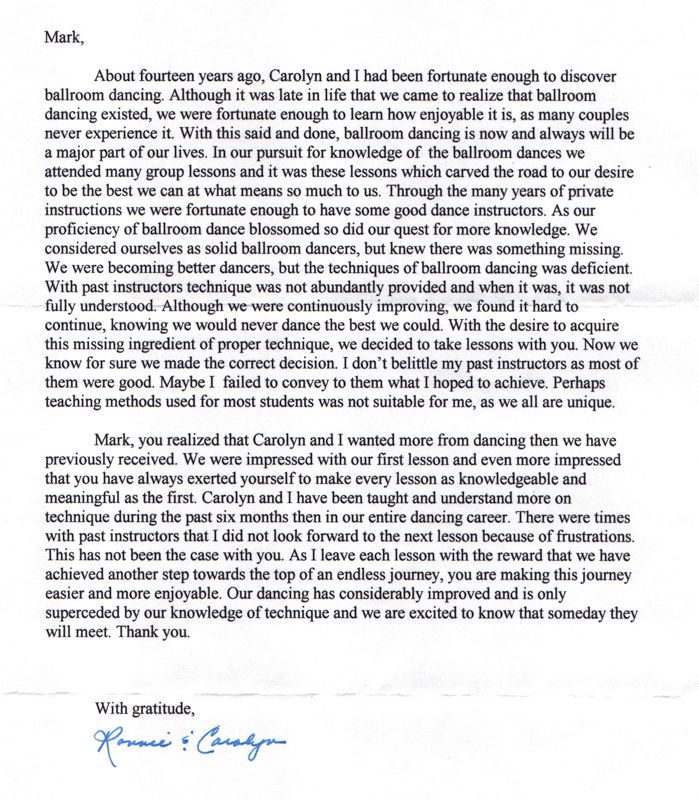 Mark,
About fourteen years ago, Carolyn and I had been fortunate enough to discover
ballroom dancing. Although it was late in life that we came to realize that ballroom
dancing existed, we were fortunate enough to learn how enjoyable it is, as many couples
never experience it. With this said and done, ballroom dancing is now and always will be
a major part of our lives. In our pursuit for knowledge of the ballroom dances we
attended many group lessons and it was these lessons which carved the road to our desire
to be the best we can at what means so much to us. Through the many years of private
instructions we were fortunate enough to have some good dance instructors. As our
proficiency of ballroom dance blossomed so did our quest for more knowledge. We
considered ourselves as solid ballroom dancers, but knew there was something missing.
We were becoming better dancers, but the techniques of ballroom dancing was deficient.
With past instructors technique was not abundantly provided and when it was, it was not
fully understood. Although we were continuously improving, we found it hard to
continue, knowing we would never dance the best we could. With the desire to acquire
this missing ingredient of proper technique, we decided to take lessons with you. Now we
know for sure we made the correct decision. I don't belittle my past instructors as most of
them were good. Maybe I failed to convey to them what I hoped to achieve. Perhaps
teaching methods used for most students was not suitable for me, as we all are unique.
Mark, you realized that Carolyn and I wanted more from dancing then we have
previously received. We were impressed with our first lesson and even more impressed
that you have always exerted yourself to make every lesson as knowledgeable and
meaningful as the first. Carolyn and I have been taught and understand more on
technique during the past six months then in our entire dancing career. There were times
with past instructors that I did not look forward to the next lesson because of frustrations.
This has not been the case with you. As I leave each lesson with the reward that we have
achieved another step towards the top of an endless journey, you are making this journey
easier and more enjoyable. Our dancing has considerably improved and is only
superceded by our knowledge of technique and we are excited to know that someday they
will meet. Thank you.
With gratitude,
Ronnie & Carolyn